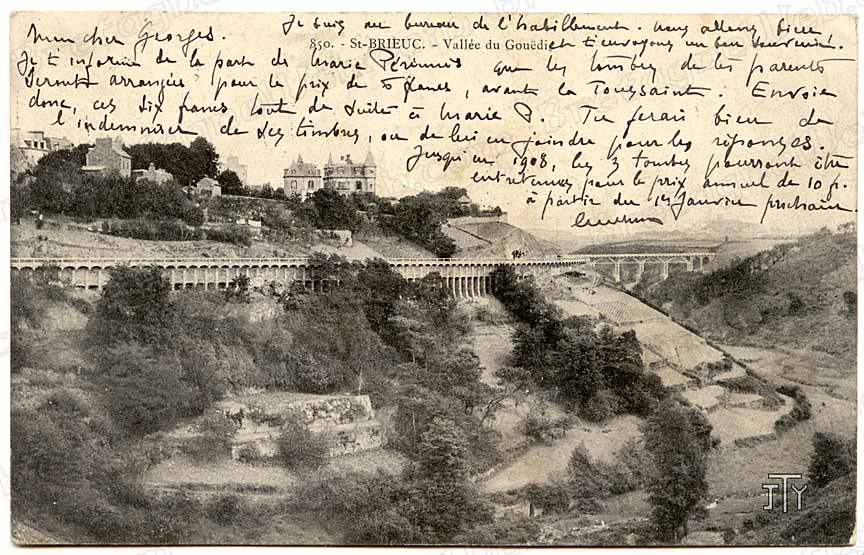 Mon cher Georges.
Je suis au bureau de l'habillement. nous allons bien
et t'envoyons un bon souvenir.
850. - St-BRIEUC. - Vallée du Gouëdic
Je t'informe de la part de Marie que les tombes de tes parents
seront arrangées pour le prix de francs, avant la Toussaint. Envoie
donc, ces dix francs tout de suite à Marie P. Tu ferais bien de
l'indemniser de ses timbres, ou de lui en joindre pour les réponses.
Jusqu'en 1908, les 3 tombes pourront être
entretenues pour le prix annuel de 10 f.
à partir du 1er Janvier prochain.
JTY